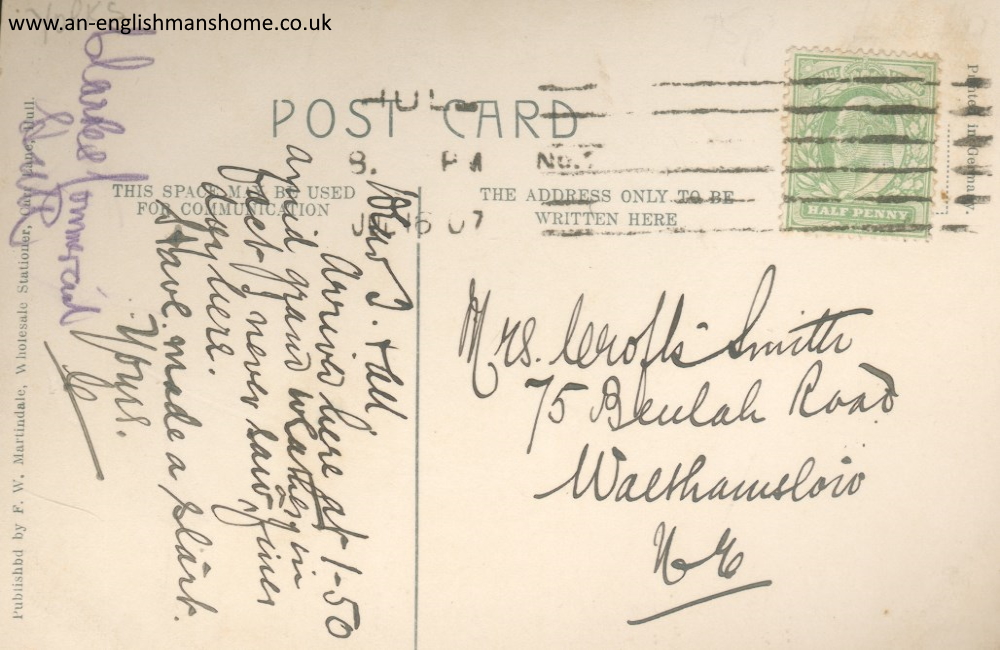 www.an-englishmanshome.co.uk
Clarke's Commercial
Hull
POST CARD
JUL
8. PM No.
16 07
THIS SPACE MAY BE USED
FOR COMMUNICATION
THE ADDRESS ONLY TO BE
WRITTEN HERE
HALF PENNY
Printed in Germany.
Dear J. & All
Arrived here at 1-50
amid grand weather, in
fact, never saw finer
Yours.
Have made a start.
here.
Mrs. Crofts Smith
75 Beulah Road
Walthamslow
N.E
Publishbd by F. W. Martindale, Wholesale Stationer, Lane, Hull.